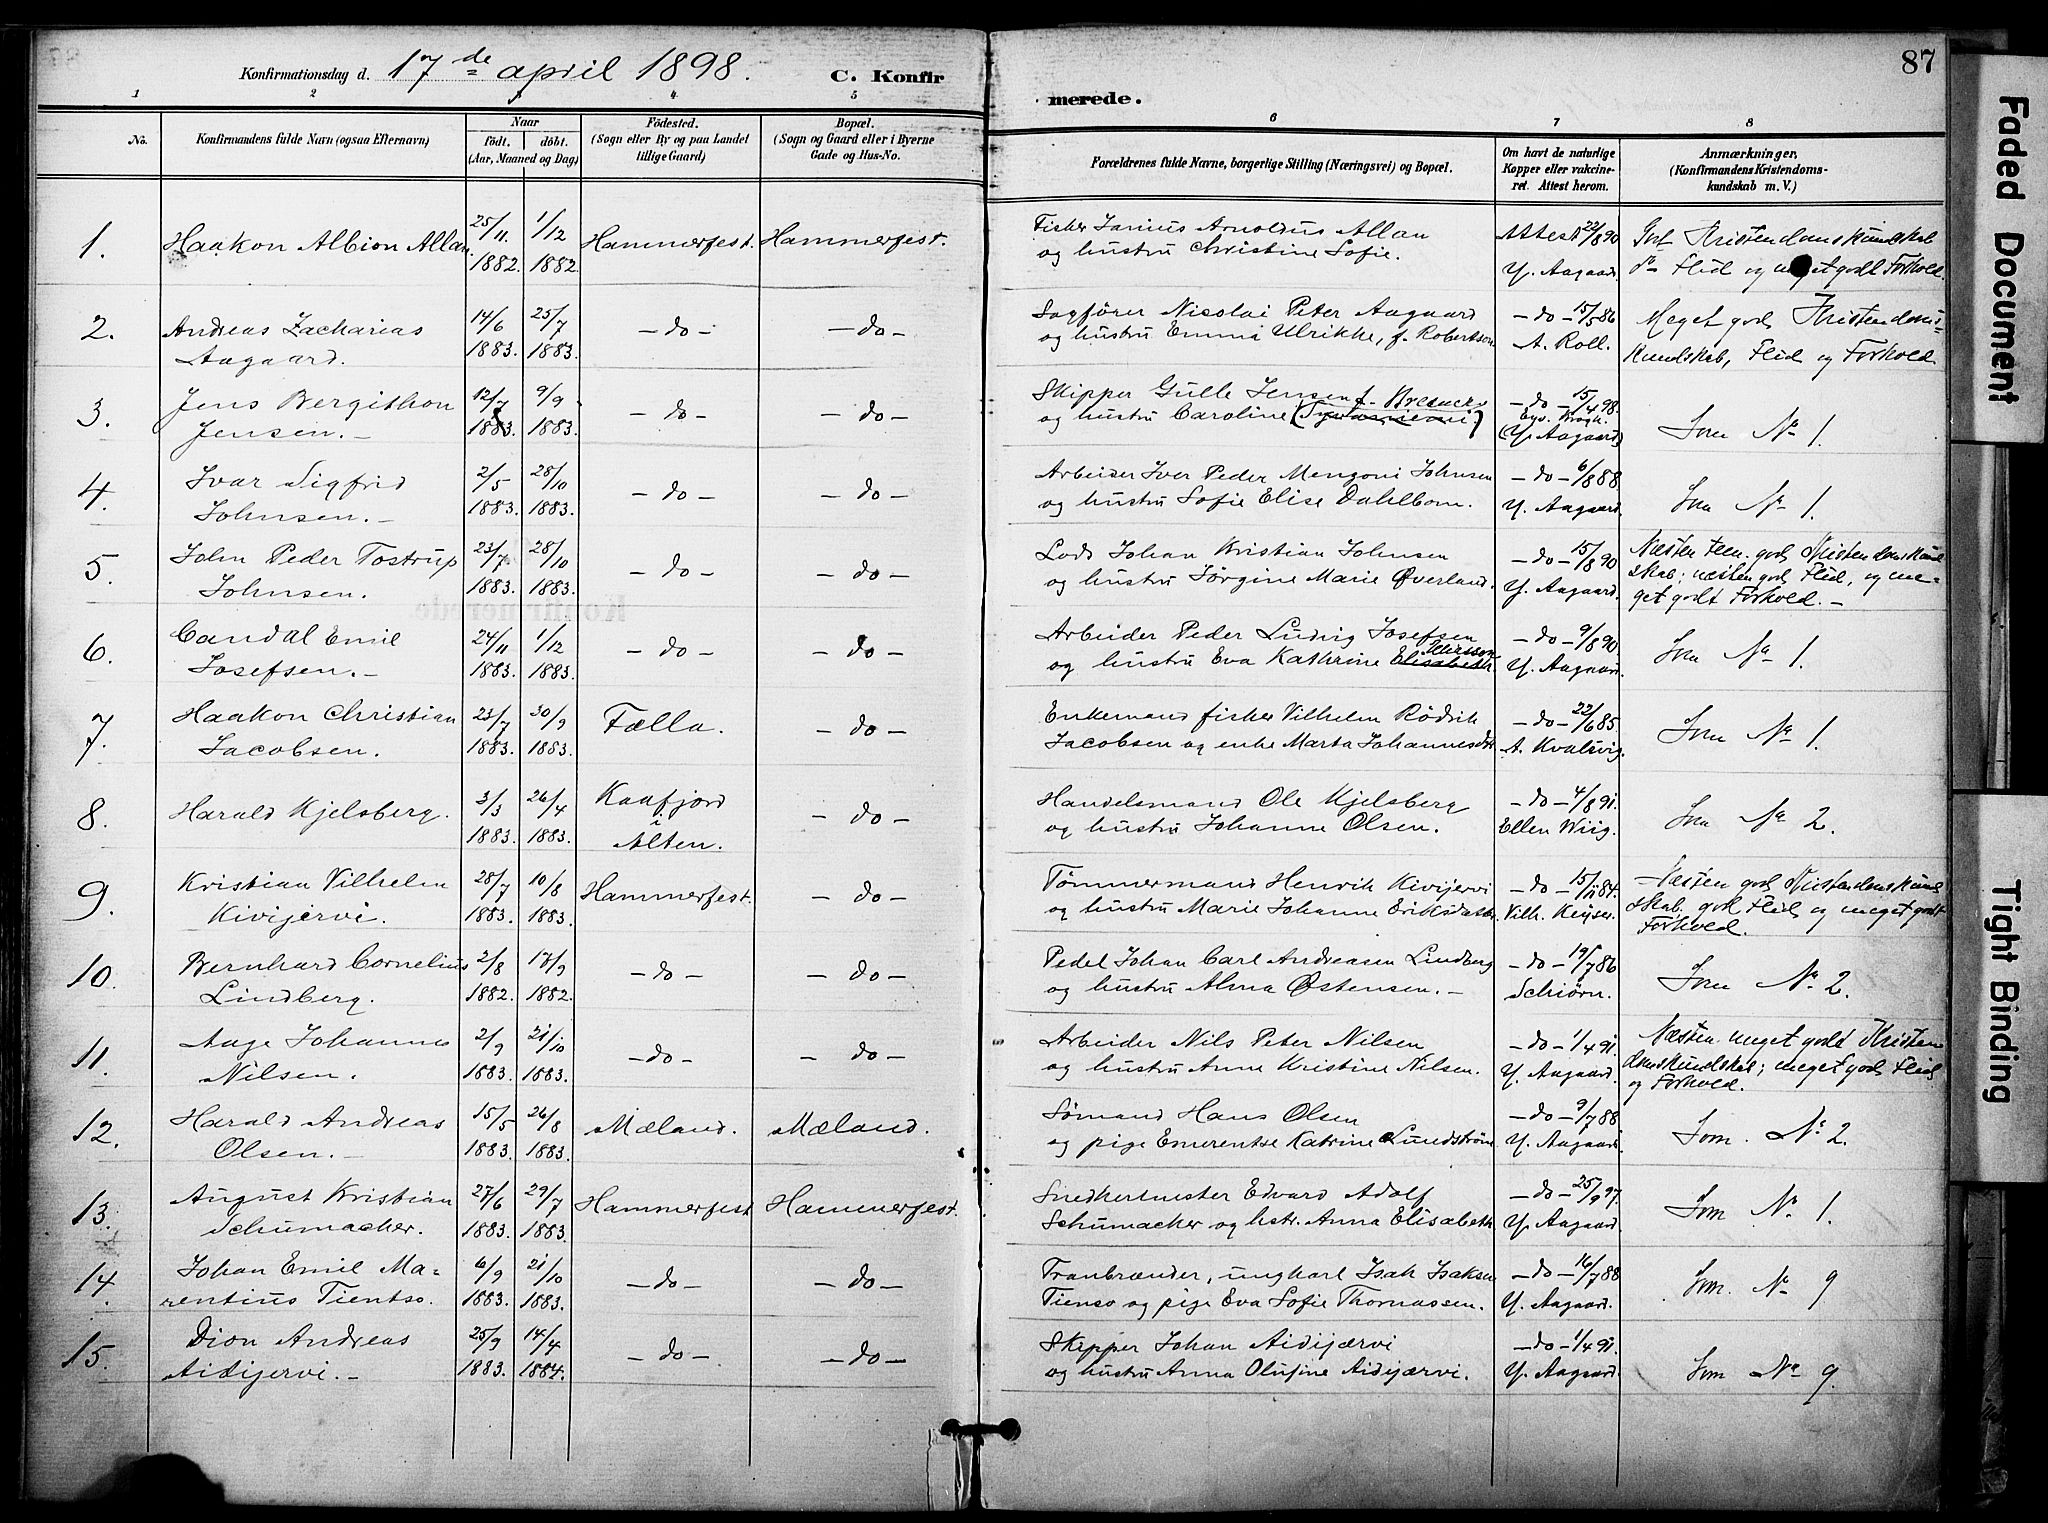 Konfirmationsdag d. 17de april 1898. C. Konfirmerede. 87
1 2 3 4 5 6 7 8
No. Konfirmandens fulde Navn (ogsaa Efternavn) Naar født. døbt. (Aar, Maaned og Dag) Fødested. (Sogn eller By og paa Landet tillige Gaard) Bopæl. (Sogn og Gaard eller i Byerne Gade og Hus-No.
Forældrenes fulde Navne, borgerlige Stilling (Næringsvei) og Bopæl. Om havt de naturlige Kopper eller vakcineret. Attest herom. Anmærkninger, (Konfirmandens Kristendomskundskab m. V.)
1. Haakon Albion Allan 25/11 1882. 1/12 1882. Hammerfest. Hammerfest.
Fisker Janius Arnoldus Allan og hustru Christine Sofie. Attest 22/8 90 Y. Aagaard God Kristendomskundskab do Flid og meget godt Forhold.
2. Andreas Zacharias Aagaard. 14/6 1883. 25/7 1883. - do - - do -
Sagfører Nicolai Peter Aagaard og hustru Emma Ulrikke, f. Robertson - do - 15/5 86 A. Roll. Meget god Kristendomskundskab, Flid og Forhold
3. Jens Bergithon Jensen. - 12/7 1883. 9/9 1883. - do - - do -
Skipper Gulle Jensen og hustru Caroline - do - 15/4 98. Eyv. Krogh. (Y. Aagaard) Som No 1.
4. Ivar Sigfrid Johnsen. - 2/5 1883. 28/10 1883. - do - - do -
Arbeider Iver Peder Mengoni Johnsen og hustru Sofie Elise Dahlbom. - do - 6/8 88 Y. Aagaard. Som No 1.
5. John Peder Tostrup Johnsen. 23/7 1883. 28/10 1883. - do - - do -
Lods Johan Kristian Johnsen og hustru Jørgine Marie Øverland. - do - 15/8 90 Y. Aagaard. Næsten god Kristendomskundskab; næsten god Flid, og meget godt Forhold. -
6. Candal Emil Josefsen. - 24/11 1883. 1/12 1883. - do - - do -
Arbeider Peder Ludvig Josefsen og hustru Eva Kathrine Elisabeth - do - 9/8 90 Y. Aagaard Som No 1.
7. Haakon Christian Jacobsen. 23/7 1883. 30/9 1883. Fælla. - do -
Enkemand fisker Vilhelm Rødrik Jacobsen og enke Marta Johannesdtr - do - 22/6 85. A. Kvalsvig. Som No 1.
8. Harald Kjelsberg. 3/3 1883. 26/4 1883. Kaafjord i Alten. - do -
Handelsmand Ole Kjelsberg og hustru Johanne Olsen. - do - 4/8 91. Ellen Wiig. Som No 2.
9. Kristian Vilhelm Kivijervi. 28/7 1883. 10/8 1883. Hammerfest. - do -
Tømmermand Henrik Kivijervi og hustru Marie Johanne Eriksdatter - do - 15/11 84. Vilh. Keyser. Næsten god Kristendomskundskab, god Flid og meget godt Forhold.
10. Bernhard Cornelius Lindberg. 2/8 1882. 17/9 1882. - do - - do -
Pedel Johan Carl Andreasen Lindberg og hustru Alma Østensen. - - do - 19/7 86 Schiörn. Som No 2.
11. Aage Johannes Nilsen. 2/9 1883. 21/10 1883. - do - - do -
Arbeider Nils Peter Nilsen og hustru Anne Kristine Nilsen. - do - 1/4 91. Y. Aagaard. Næsten meget godt Kristendomskundskab; meget god Flid og Forhold.
12. Harald Andreas Olsen. - 15/5 1883. 26/8 1883. Mæland. Mæland.
Sømand Hans Olsen og pige Emerentse Katrine Lundstrøm - do - 9/7 88 Y. Aagaard. Som. No 2.
13. August Kristian Schumacher. 27/6 1883. 29/7 1883. Hammerfest Hammerfest.
Snedkermester Edvard Adolf Schumacker og hstr. Anna Elisabeth - do - 25/9 97. Y. Aagaard Som No 1.
14. Johan Emil Marentius Tientso. 6/9 1883. 21/10 1883. - do - - do -
Tranbrænder, ungkarl Isak Isaksen Tienso og pige Eva Sofie Thomassen. - do - 16/7 88 Y. Aagaard. Som. No 9
15. Dion Andreas Aidijervi. - 25/9 1883. 14/4 1884. - do - - do -
Skipper Johan Aidijærvi og hustru Anna Olufine Aidijærvi. - do - 1/4 91. Y. Aagaard. Som No 9.
Konfirmerede
Faded Document
Tight Binding